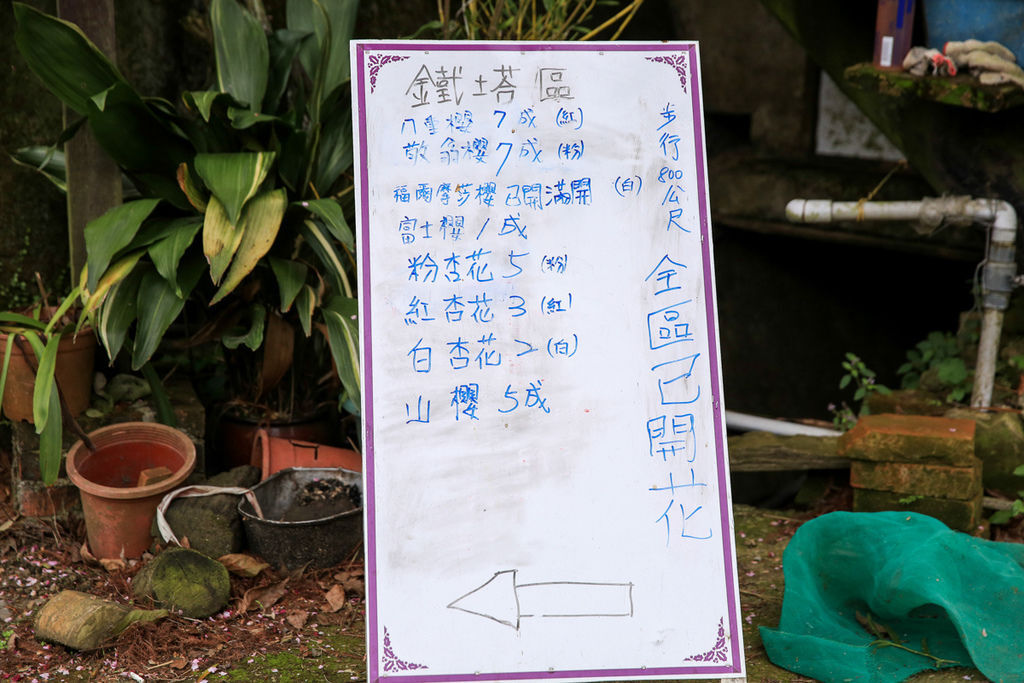 鐵塔區
八重櫻 7成 (紅)
敬翁櫻 7成 (粉)
福爾摩莎櫻 已開滿開 (白)
富士櫻 1成
粉杏花 5 (粉)
紅杏花 3 (紅)
白杏花 2 (白)
山櫻 5成
步行800公尺
全區已開花